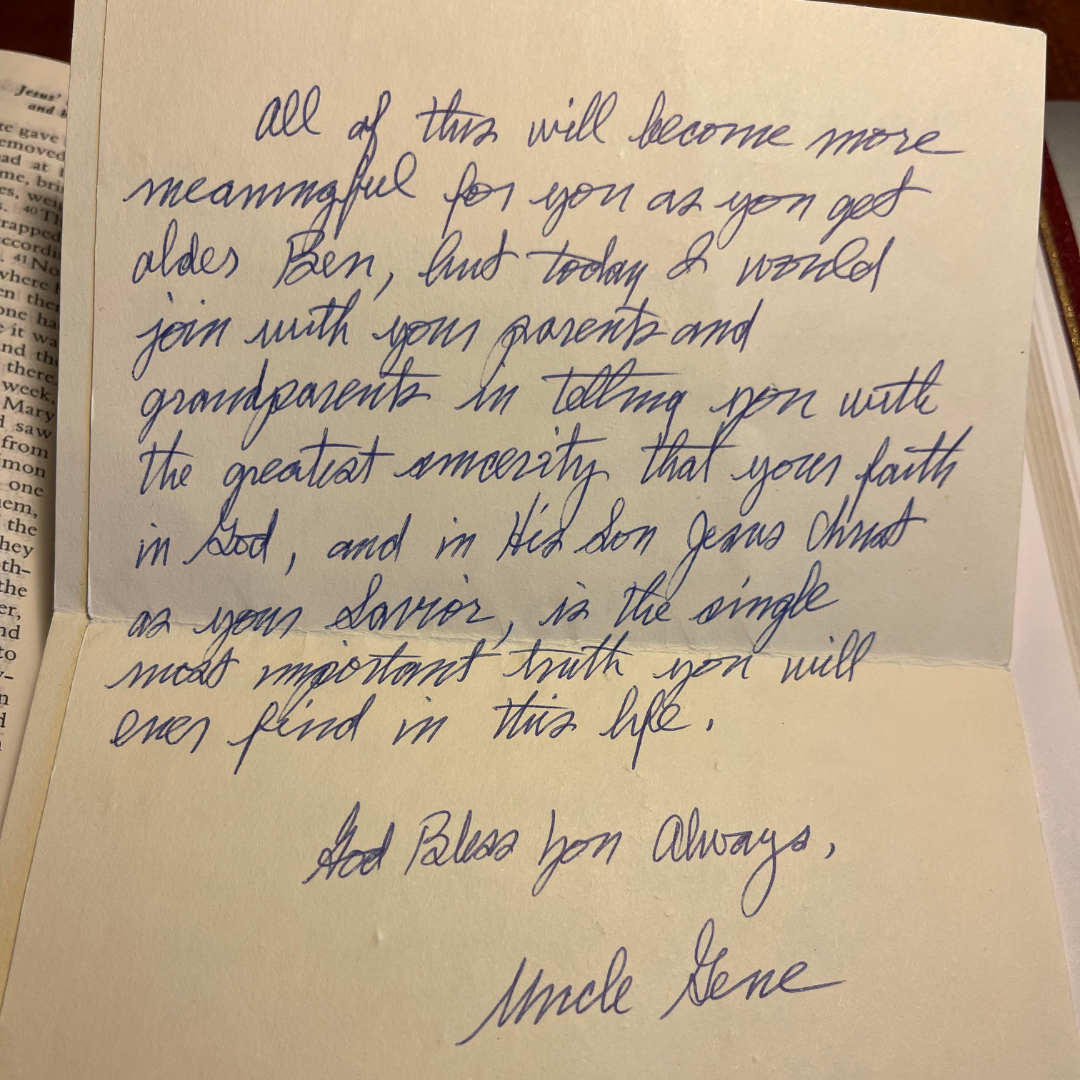 Jesus'
and b
te gave
emoved
ad at t
me, bri
es, wei
s. 40 Th
rapped
ccordi
. 41 No
where
en the
one ha
e it wa
nd th
there.
week,
Mary
d saw
from
imon
one
em,
the
hey
oth-
the
er,
nd
to
y-
n
d
All of this will become more
meaningful for you as you get
older Ben, but today I would
join with your parents and
grandparents in telling you with
the greatest sincerity that your faith
in God, and in His Son Jesus Christ
as your Savior, is the single
most important truth you will
ever find in this life.
God Bless You Always,
Uncle Gene